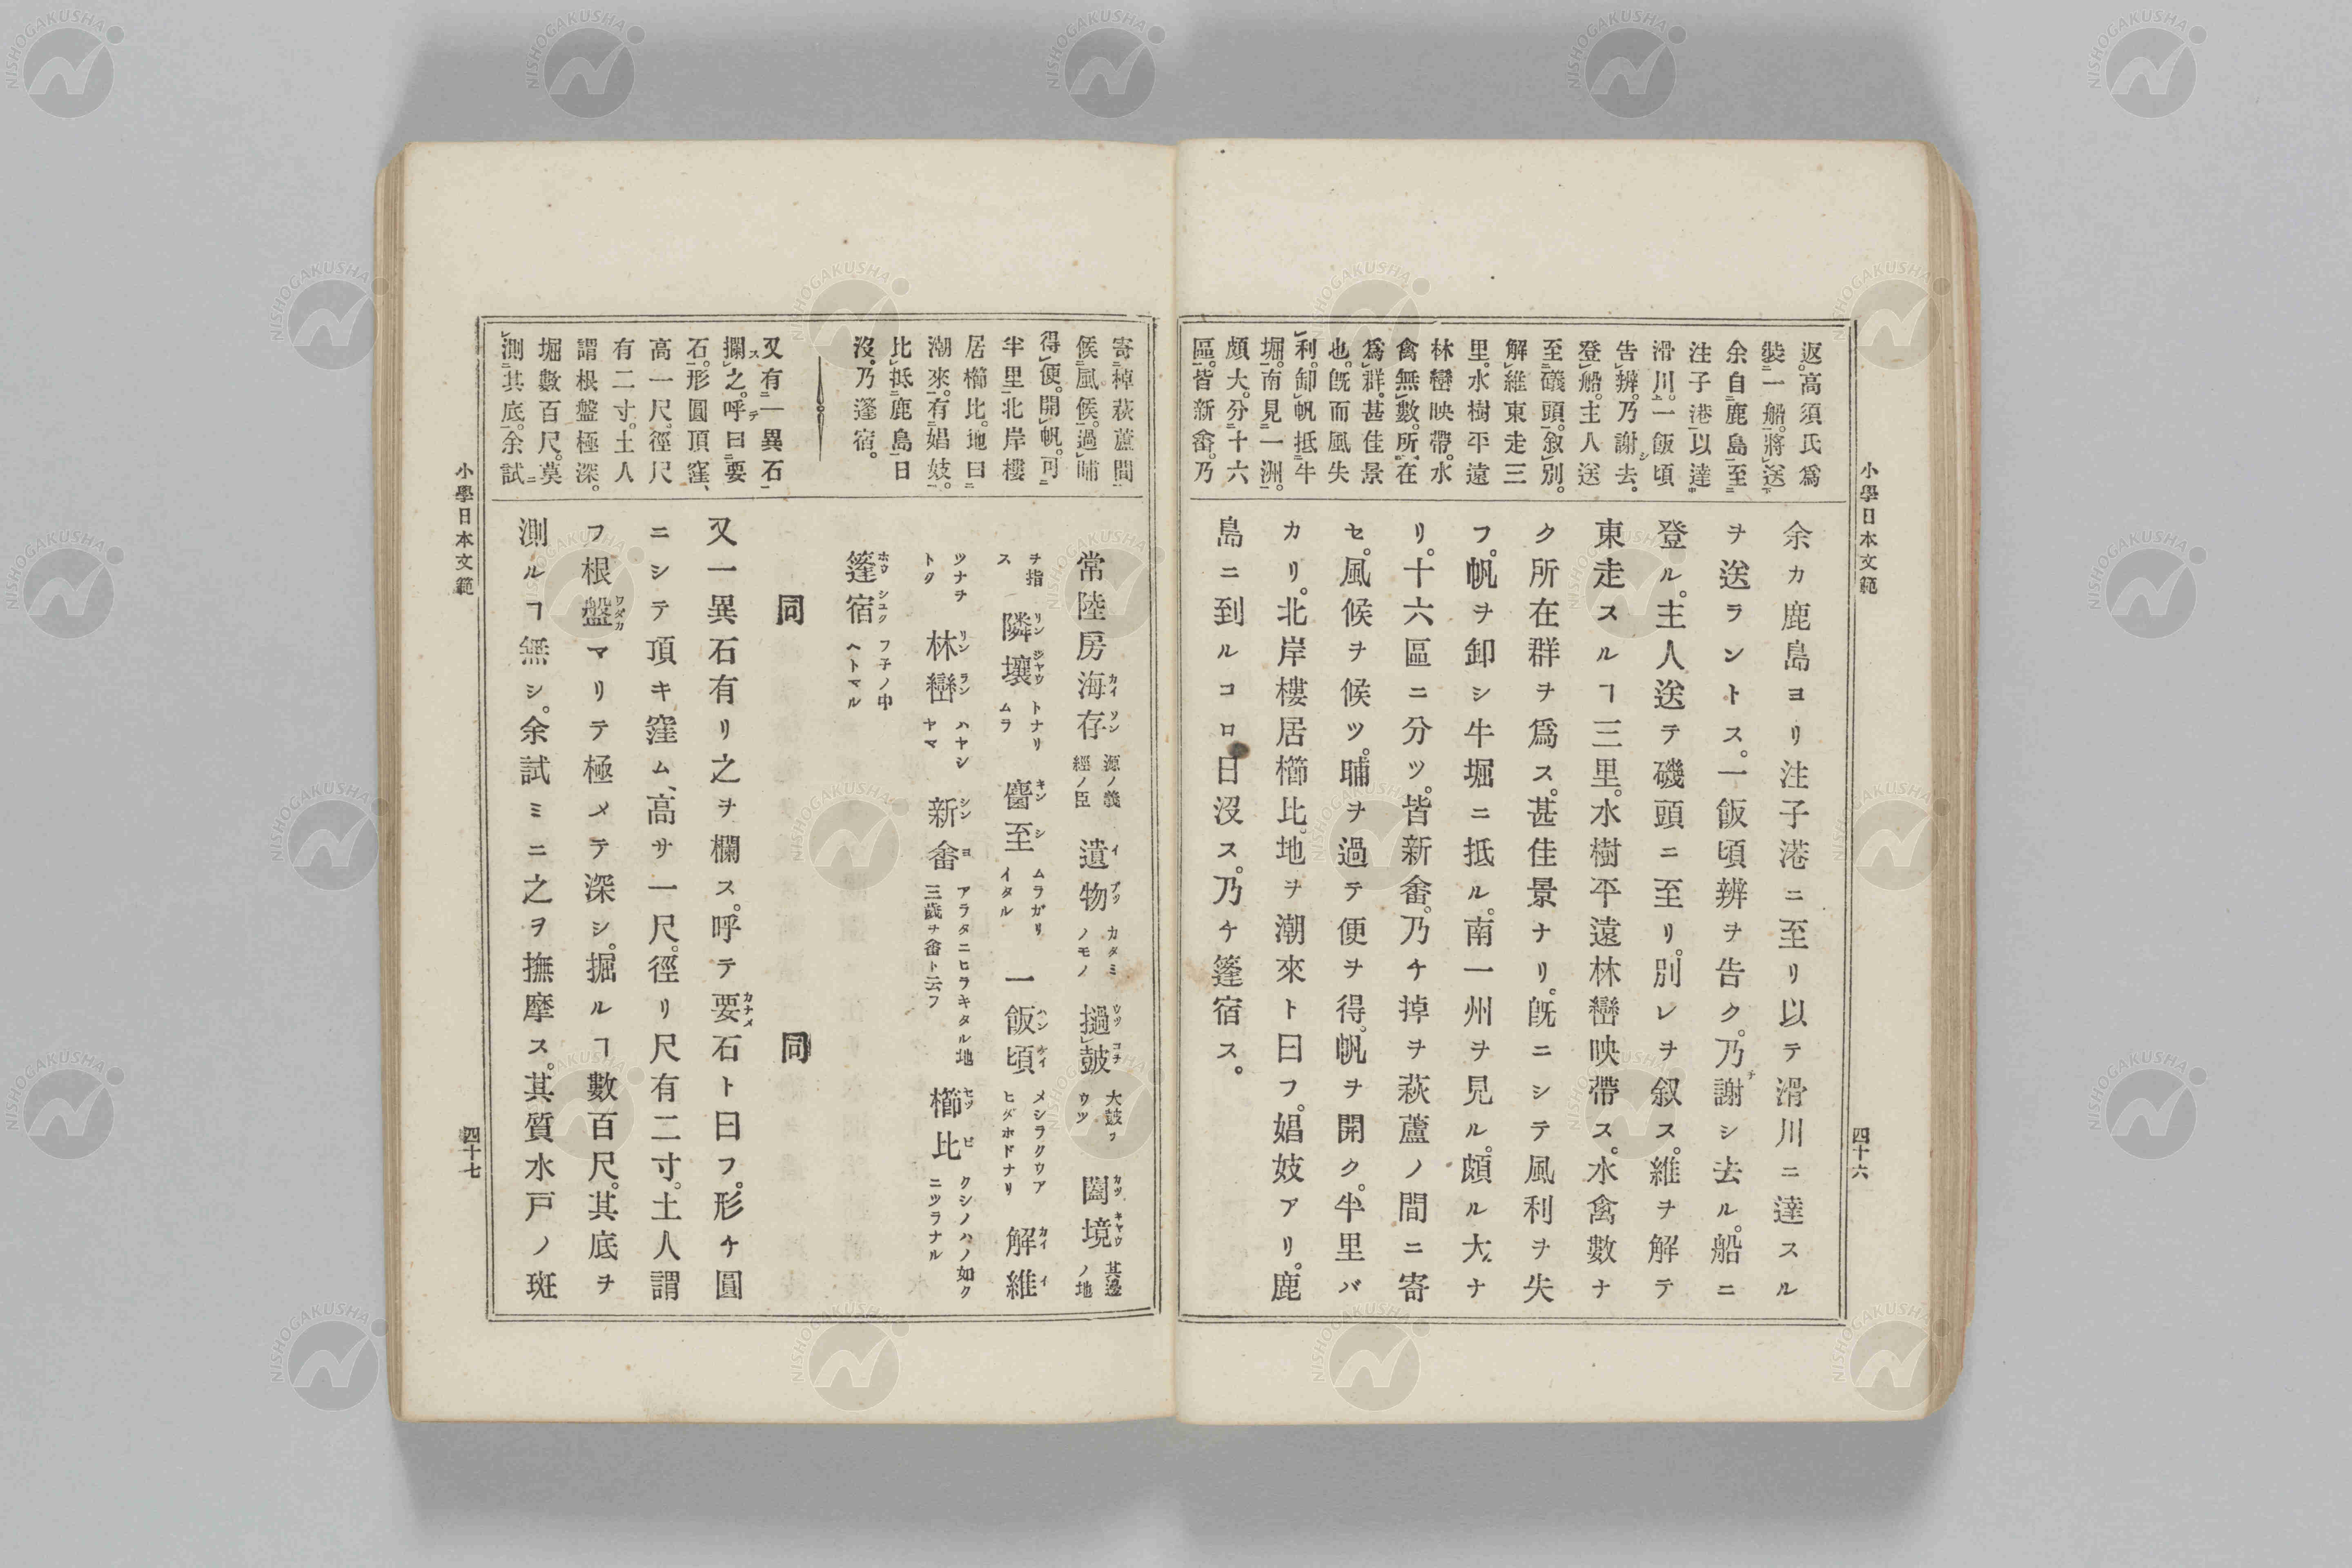 小學日本文範
四十六
返。高須氏爲
裝一船。將送
余自鹿島至
注子港以達
滑川。一飯頃
告辨。乃謝去。
登船。主人送
至礒頭。叙別。
解維東走三
里。水樹平遠
林巒映帶。水
禽無數。所在
爲群。甚佳景
也。既而風失
利。卸帆抵牛
堀。南見一洲。
頗大。分十六
區。皆新畬。乃
余カ鹿島ヨリ注子港ニ至リ以テ滑川ニ達スル
ヲ送ラントス。一飯頃辨ヲ告ク。乃チ謝シ去ル。船ニ
登ル。主人送テ磯頭ニ至リ。別レヲ叙ス。維ヲ解テ
東走スルヿ三里。水樹平遠林巒映帶ス。水禽數ナ
ク所在群ヲ爲ス。甚佳景ナリ。既ニシテ風利ヲ失
フ。帆ヲ卸シ牛堀ニ抵ル。南一州ヲ見ル。頗ル大ナ
リ。十六區ニ分ツ。皆新畬。乃チ掉ヲ萩蘆ノ間ニ寄
セ。風候ヲ候ツ。晡ヲ過テ便ヲ得。帆ヲ開ク。半里バ
カリ。北岸樓居櫛比。地ヲ潮來ト曰フ。娼妓アリ。鹿
島ニ到ルコロ日沒ス。乃チ篷宿ス。
寄棹萩蘆間
候風候。過晡
得便。開帆。可
半里北岸樓
居櫛比。地曰
潮來。有娼妓。
比抵鹿島日
沒。乃篷宿。
又有一異石
欄之。呼曰要
石。形圓頂窪、
高一尺。徑尺
有二寸。土人
謂根盤極深。
堀數百尺。莫
測其底。余試
常陸房海存 源ノ義經ノ臣 遺物 カタミノモノ 撾皷 大皷ヲウツ 闔境 其邊ノ地
ヲ指ス 隣壤 トナリムラ 麕至 ムラガリイタル 一飯頃 メシヲクウアヒダホドナリ 解維
ツナヲトク 林巒 ハヤシヤマ 新畬 アラタニヒラキタル地三歳ヲ畬ト云フ 櫛比 クシノハノ如クニツラナル
篷宿 フ子ノ中ヘトマル
同 同
又一異石有リ之ヲ欄ス。呼テ要石ト曰フ。形チ圓
ニシテ頂キ窪ム、高サ一尺。徑リ尺有二寸。土人謂
フ根盤マリテ極メテ深シ。掘ルヿ數百尺。其底ヲ
測ルヿ無シ。余試ミニ之ヲ撫摩ス。其質水戸ノ斑
小學日本文範
四十七